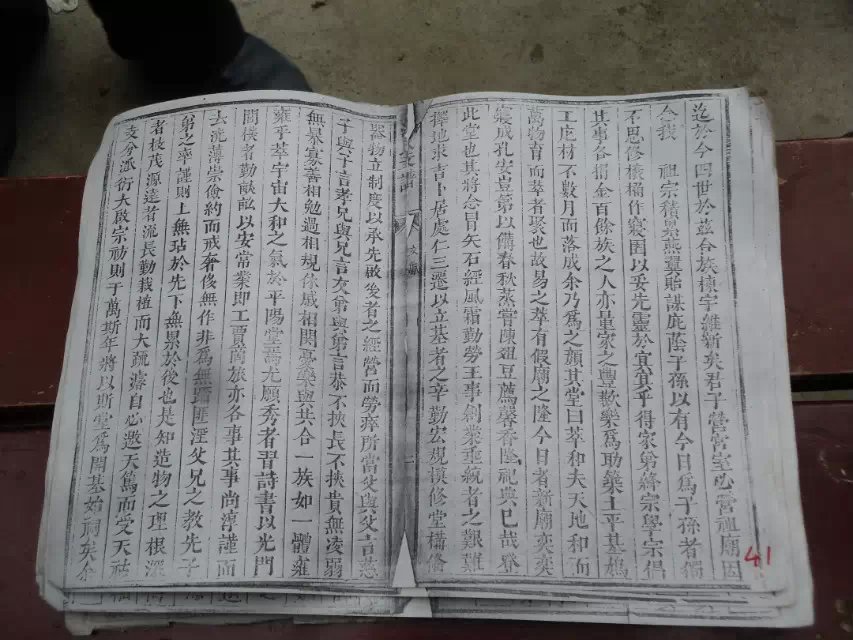 迄於今四世於茲合族棟宇維新矣君子營宮室必營祖廟因
念我 祖宗積累燕翼貽謀庇蔭子孫以有今日為子孫者獨
不思修榱桷作寢囷以妥先靈於宜其乎得家第絳宗學宗倡
其事各捐金百餘族之人亦量家之豐歉樂為助築土平基鳩
工庀材不數月而落成余乃為之顏其堂曰萃和夫天地和而
萬物育而萃者聚也故易之萃有假廟之隆今日者新廟奕奕
寢成孔安豈第以備春秋烝嘗陳俎豆薦馨香隆祀典巳哉登
此堂也其將念冒矢石經風霜勤勞王事創業垂統者之艱難
擇地求吉卜居處仁三遷以立基者之辛勤宏規模修堂構備
器物立制度以承先啟後者之經營而勞瘁所當父與父言慈
子與子言孝兄與兄言友弟與弟言恭不挾長不挾貴無凌弱
無暴寡善相勉過相規休戚相關憂樂與共合一族如一體雍
雍乎萃宇宙大和之氣於平陽堂焉尤願秀者習詩書以光門
閭樸者勤畎畝以安常業即工賈商旅亦各事其事尚淳謹而
去澆薄崇儉約而戒奢侈無作非為無蹈匪淫父兄之教先子
弟之率謹則上無玷於先下無累於後也是知造物之理根深
者枝茂源遠者流長勤栽植而大疏濬自必邀天篤而受天祜
支分派衍大啟宗祊則于萬斯年將以斯堂為開基始祠矣余
41